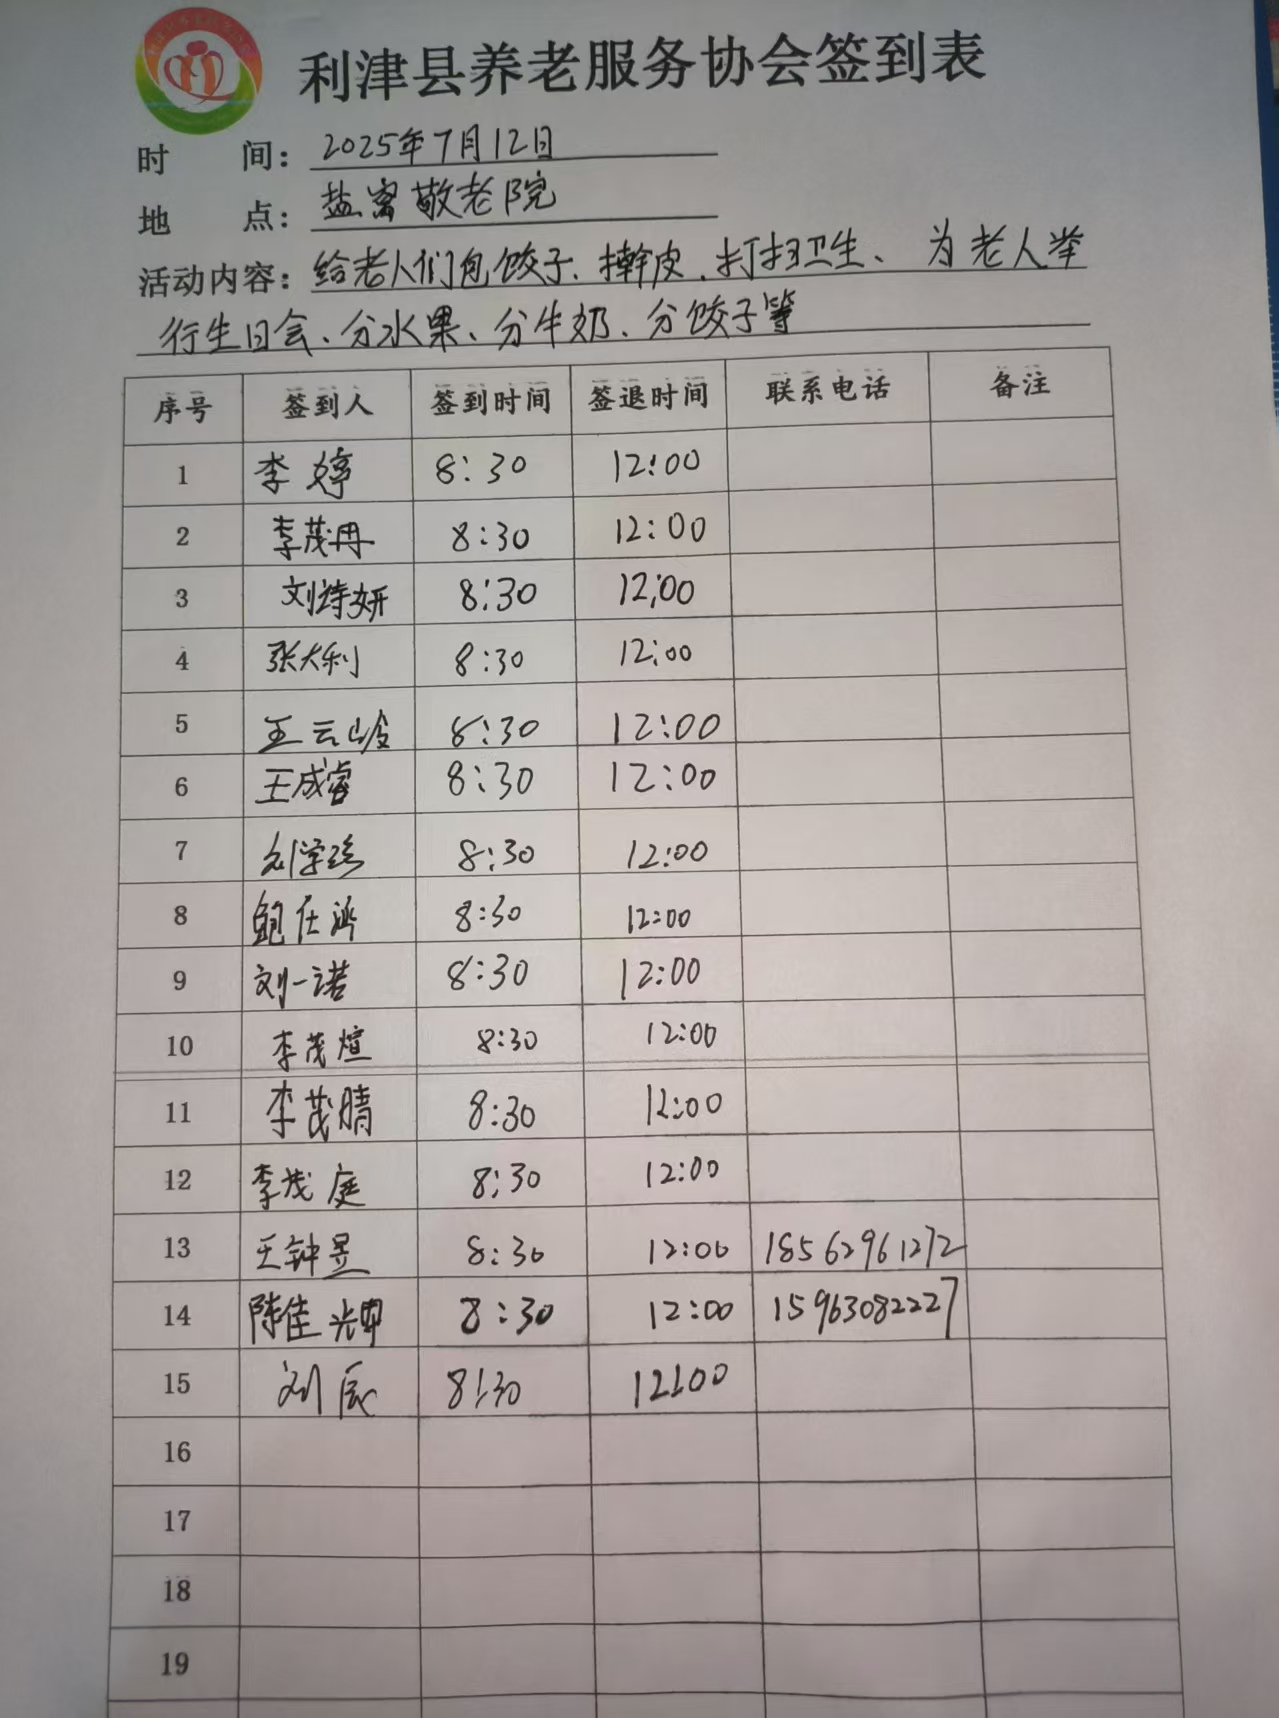 利津县养老服务协会签到表
时 间: 2025年7月12日
地 点: 盐窝敬老院
活动内容: 给老人们包饺子、擀皮、打扫卫生、为老人举
行生日会、分水果、分牛奶、分饺子等
序号 签到人 签到时间 签退时间 联系电话 备注
1 李婷 8:30 12:00
2 李茂冉 8:30 12:00
3 刘诗妍 8:30 12:00
4 张大利 8:30 12:00
5 王云岭 8:30 12:00
6 王成睿 8:30 12:00
7 刘学 8:30 12:00
8 鲍仕 8:30 12:00
9 刘一诺 8:30 12:00
10 李茂煊 8:30 12:00
11 李茂晴 8:30 12:00
12 李茂庭 8:30 12:00
13 王钟昱 8:30 12:00 18562961272
14 陈佳 8:30 12:00 15963082227
15 刘辰 8:30 12:00
16
17
18
19